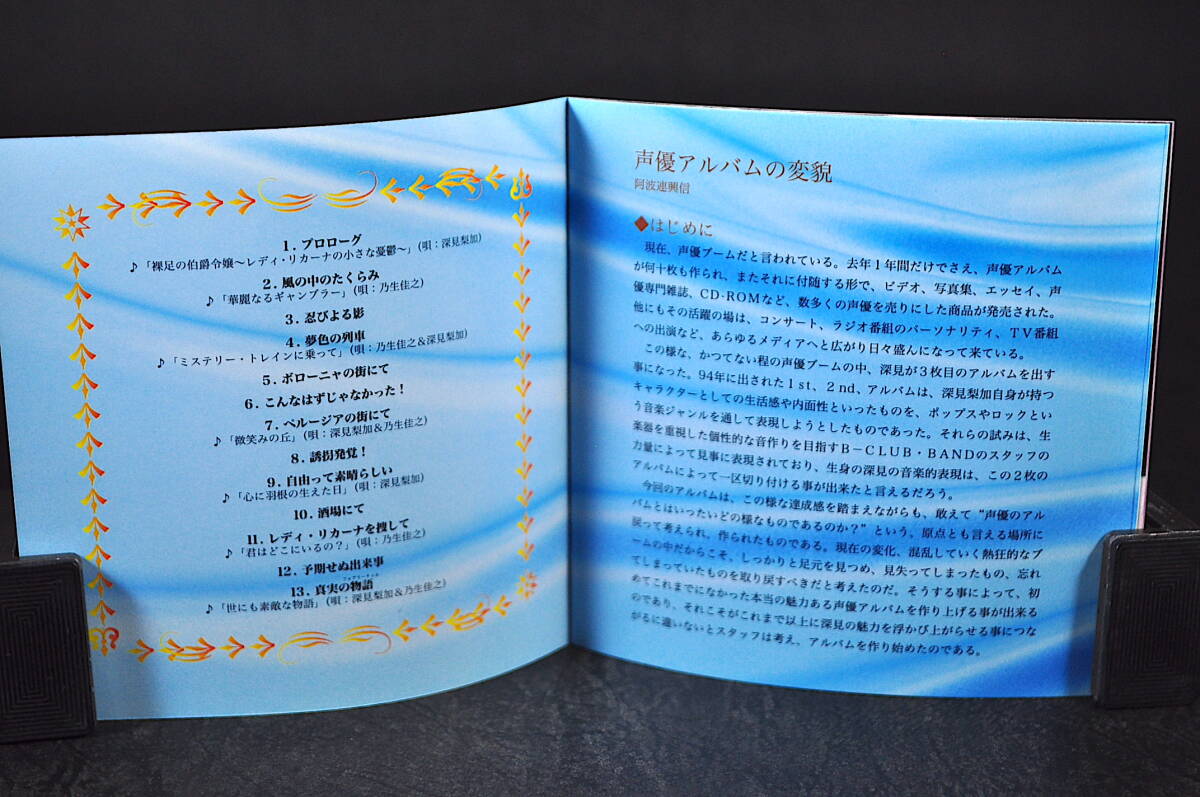 1. プロローグ
♪「裸足の伯爵令嬢〜レディ・リカーナの小さな憂鬱〜」(唄：深見梨加)
2. 風の中のたくらみ
♪「華麗なるギャンブラー」(唄：乃生佳之)
3. 忍びよる影
4. 夢色の列車
♪「ミステリー・トレインに乗って」(唄：乃生佳之＆深見梨加)
5. ボローニャの街にて
6. こんなはずじゃなかった！
7. ペルージアの街にて
♪「微笑みの丘」(唄：深見梨加＆乃生佳之)
8. 誘拐発覚！
9. 自由って素晴らしい
♪「心に羽根の生えた日」(唄：深見梨加)
10. 酒場にて
11. レディ・リカーナを捜して
♪「君はどこにいるの？」(唄：乃生佳之)
12. 予期せぬ出来事
13. 真実の物語
♪「世にも素敵な物語」(唄：深見梨加＆乃生佳之)
声優アルバムの変貌
阿波連興信
◆はじめに
現在、声優ブームだと言われている。去年１年間だけでさえ、声優アルバム
が何十枚も作られ、またそれに付随する形で、ビデオ、写真集、エッセイ、声
優専門雑誌、CD-ROMなど、数多くの声優を売りにした商品が発売された。
他にもその活躍の場は、コンサート、ラジオ番組のパーソナリティ、ＴＶ番組
への出演など、あらゆるメディアへと広がり日々盛んになって来ている。
この様な、かつてない程の声優ブームの中、深見が３枚目のアルバムを出す
事になった。94年に出された１st、２nd、アルバムは、深見梨加自身が持つ
キャラクターとしての生活感や内面性といったものを、ポップスやロックとい
う音楽ジャンルを通して表現しようとしたものであった。それらの試みは、生
楽器を重視した個性的な音作りを目指すＢ－ＣＬＵＢ・ＢＡＮＤのスタッフの
力量によって見事に表現されており、生身の深見の音楽的表現は、この２枚の
アルバムによって一区切り付ける事が出来たと言えるだろう。
今回のアルバムは、この様な達成感を踏まえながらも、敢えて“声優のアル
バムとはいったいどの様なものであるのか？”という、原点とも言える場所に
戻って考えられ、作られたものである。現在の変化、混乱していく熱狂的なブ
ームの中だからこそ、しっかりと足元を見つめ、見失ってしまったもの、忘れ
てしまっていたものを取り戻すべきだと考えたのだ。そうする事によって、初
めてこれまでになかった本当の魅力ある声優アルバムを作り上げる事が出来る
のであり、それこそがこれまで以上に深見の魅力を浮かび上がらせる事につな
がるに違いないとスタッフは考え、アルバムを作り始めたのである。